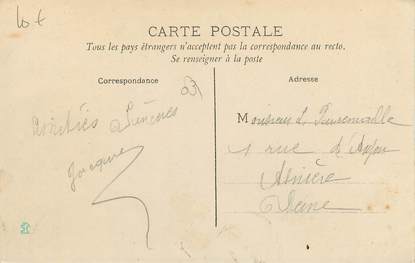 10 €
CARTE POSTALE
Tous les pays étrangers n'acceptent pas la correspondance au recto.
Se renseigner à la poste
Correspondance
Adresse
Amitiés Sincères
Jacques
Monsieur L.
1 rue d'Anjou
Asnière
Seine